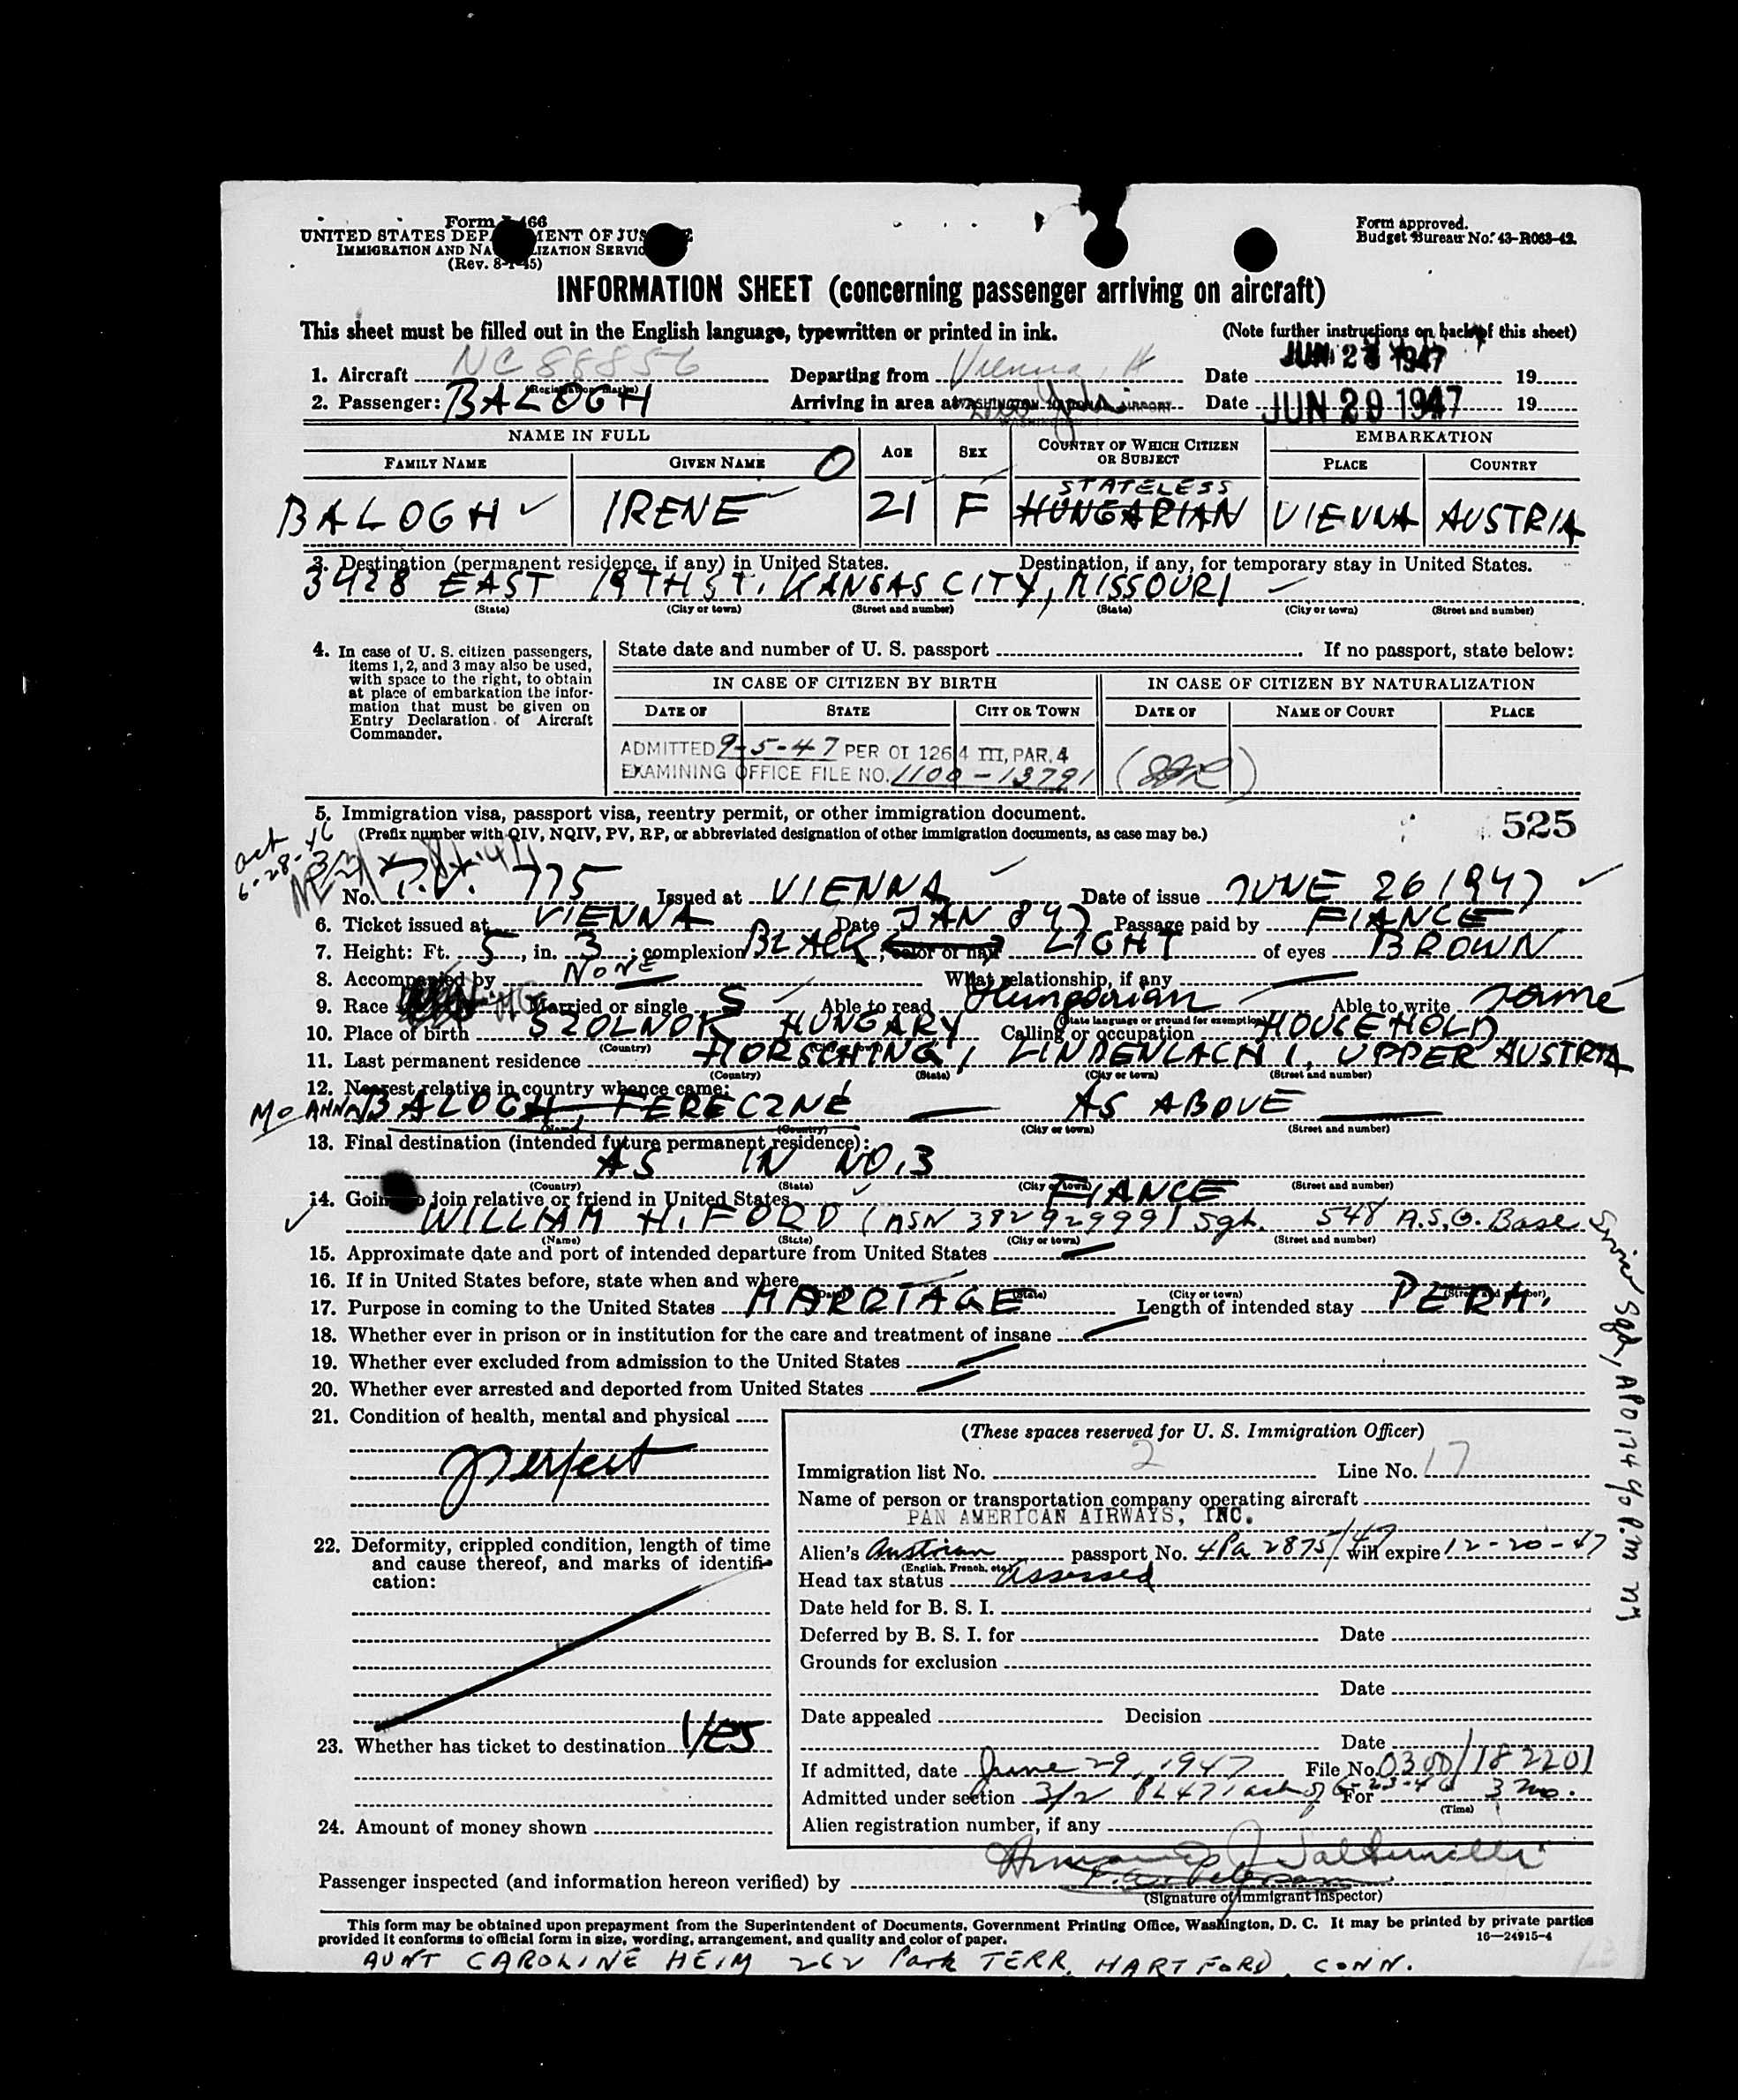 Form I-466
UNITED STATES DEPARTMENT OF JUSTICE
IMMIGRATION AND NATURALIZATION SERVICE
(Rev. 8-1-45)
Form approved.
Budget Bureau No. 43-R063-42.
INFORMATION SHEET (concerning passenger arriving on aircraft)
This sheet must be filled out in the English language, typewritten or printed in ink. (Note further instructions on back of this sheet)
1. Aircraft NC 88856 Departing from Vienna, A Date JUN 28 1947 19
(Registration marks)
2. Passenger: BALOGH Arriving in area at WASHINGTON NATIONAL AIRPORT Date JUN 29 1947 19
NAME IN FULL AGE SEX COUNTRY OF WHICH CITIZEN OR SUBJECT EMBARKATION
FAMILY NAME GIVEN NAME O PLACE COUNTRY
STATELESS
BALOGH IRENE 21 F HUNGARIAN VIENNA AUSTRIA
3. Destination (permanent residence, if any) in United States. Destination, if any, for temporary stay in United States.
3428 EAST 19TH ST. KANSAS CITY, MISSOURI
(State) (City or town) (Street and number) (State) (City or town) (Street and number)
4. In case of U. S. citizen passengers, items 1, 2, and 3 may also be used, with space to the right, to obtain at place of embarkation the information that must be given on Entry Declaration of Aircraft Commander.
State date and number of U. S. passport If no passport, state below:
IN CASE OF CITIZEN BY BIRTH IN CASE OF CITIZEN BY NATURALIZATION
DATE OF STATE CITY OR TOWN DATE OF NAME OF COURT PLACE
ADMITTED 9-5-47 PER OI 126.4 III, PAR. 4
EXAMINING OFFICE FILE NO. 1100-13791
5. Immigration visa, passport visa, reentry permit, or other immigration document. 525
(Prefix number with QIV, NQIV, PV, RP, or abbreviated designation of other immigration documents, as case may be.)
act
6-28-46
3/2
No. P.V. 775 Issued at VIENNA Date of issue JUNE 26 1947
6. Ticket issued at VIENNA Date JAN 8 47 Passage paid by FIANCE
7. Height: Ft. 5, in. 3; complexion BLACK; color of hair LIGHT of eyes BROWN
8. Accompanied by NONE What relationship, if any
9. Race Married or single S Able to read Hungarian Able to write same
(State language or ground for exemption)
10. Place of birth SZOLNOK HUNGARY Calling or occupation HOUSEHOLD
(Country) (City or town)
11. Last permanent residence HORSCHING, LINDENLACH 1, UPPER AUSTRIA
(Country) (State) (City or town) (Street and number)
12. Nearest relative in country whence came:
Mo ANNA BALOGH, FERECZNÉ AS ABOVE
(Name) (Country) (City or town) (Street and number)
13. Final destination (intended future permanent residence):
AS IN NO. 3
(Country) (State) (City or town) (Street and number)
14. Going to join relative or friend in United States FIANCE
WILLIAM H. FORD (ASN 38292999) Sgt. 548 A.S.G. Base Service Sqd, APO 174 % P.M NY
(Name) (State) (City or town) (Street and number)
15. Approximate date and port of intended departure from United States
16. If in United States before, state when and where
(Date) (State) (City or town) (Street and number)
17. Purpose in coming to the United States MARRIAGE Length of intended stay PERM.
18. Whether ever in prison or in institution for the care and treatment of insane
19. Whether ever excluded from admission to the United States
20. Whether ever arrested and deported from United States
21. Condition of health, mental and physical
perfect
22. Deformity, crippled condition, length of time and cause thereof, and marks of identification:
23. Whether has ticket to destination Yes
24. Amount of money shown
(These spaces reserved for U. S. Immigration Officer)
Immigration list No. 2 Line No. 17
Name of person or transportation company operating aircraft
PAN AMERICAN AIRWAYS, INC.
Alien's Austrian passport No. 4Pa 2875/47 will expire 12-20-47
(English, French, etc.)
Head tax status Assessed
Date held for B. S. I.
Deferred by B. S. I. for Date
Grounds for exclusion
Date
Date appealed Decision
Date
If admitted, date June 29, 1947 File No. 0300/182201
Admitted under section 3/2 PL 471 act of 6-23-46 For 3 mo.
(Time)
Alien registration number, if any
Passenger inspected (and information hereon verified) by
(Signature of immigrant inspector)
This form may be obtained upon prepayment from the Superintendent of Documents, Government Printing Office, Washington, D. C. It may be printed by private parties
provided it conforms to official form in size, wording, arrangement, and quality and color of paper. 16—24915-4
AUNT CAROLINE HEIM 262 Park TERR. HARTFORD, CONN.